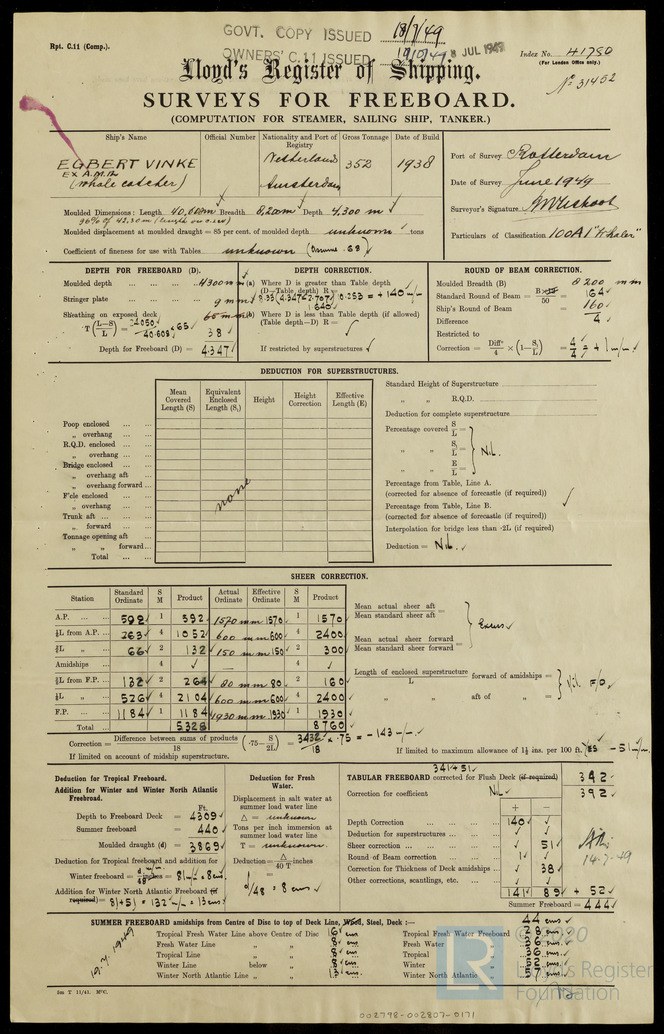 GOVT. COPY ISSUED 18/7/49
OWNERS' C.11 ISSUED 19/7/49 8 JUL 1949
Rpt. C.11 (Comp.).
Index No. 41750
(For London Office only.)
No 31452
Lloyd's Register of Shipping.
SURVEYS FOR FREEBOARD.
(COMPUTATION FOR STEAMER, SAILING SHIP, TANKER.)
Ship's Name
Official Number
Nationality and Port of Registry
Gross Tonnage
Date of Build
EGBERT VINKE
EX A.M.12
(whale catcher)
Netherlands
Amsterdam
352
1938
Port of Survey Rotterdam
Date of Survey June 1949
Surveyor's Signature
Particulars of Classification 100A1 "Whaler"
Moulded Dimensions: Length 40,605m Breadth 8,200m Depth 4,300 m
96% of 42,30 m (length on s.w.l)
Moulded displacement at moulded draught = 85 per cent. of moulded depth unknown tons
Coefficient of fineness for use with Tables unknown (Assume .68)
DEPTH FOR FREEBOARD (D).
Moulded depth 4300 mm
Stringer plate 9 mm
Sheathing on exposed deck 65 mm
T (L—S / L) = 24050 / 40.605 × 65 38
Depth for Freeboard (D) = 4347
DEPTH CORRECTION.
(a) Where D is greater than Table depth
(D—Table depth) R =
8.33 (4.347-2.707) 10.253 = + 140 m/m
1.640
(b) Where D is less than Table depth (if allowed)
(Table depth—D) R =
If restricted by superstructures
ROUND OF BEAM CORRECTION.
Moulded Breadth (B) 8200 mm
Standard Round of Beam = B×12 / 50 = 164
Ship's Round of Beam = 160
Difference 4
Restricted to
Correction = Diffce / 4 × (1—S1 / L) = 4/4 = + 1 m/m
DEDUCTION FOR SUPERSTRUCTURES.
Mean Covered Length (S)
Equivalent Enclosed Length (S1)
Height
Height Correction
Effective Length (E)
Poop enclosed
„ overhang
R.Q.D. enclosed
„ overhang
Bridge enclosed
„ overhang aft
„ overhang forward
F'cle enclosed
„ overhang
Trunk aft
„ forward
Tonnage opening aft
„ „ forward
Total
none
Standard Height of Superstructure
„ „ R.Q.D.
Deduction for complete superstructure
Percentage covered S/L =
„ „ S1/L =
„ „ E/L =
Nil.
Percentage from Table, Line A.
(corrected for absence of forecastle (if required))
Percentage from Table, Line B.
(corrected for absence of forecastle (if required))
Interpolation for bridge less than ·2L (if required)
Deduction = Nil.
SHEER CORRECTION.
Station
Standard Ordinate
S M
Product
Actual Ordinate
Effective Ordinate
S M
Product
A.P. 592 1 592 1570 mm 1570 1 1570
⅙L from A.P. 263 4 1052 600 mm 600 4 2400
⅓L „ 66 2 132 150 mm 150 2 300
Amidships 4 — 4
⅓L from F.P. 132 2 264 80 mm 80 2 160
⅙L „ 526 4 2104 600 mm 600 4 2400
F.P. 1184 1 1184 1930 mm 1930 1 1930
Total 5328 8760
Mean actual sheer aft / Mean standard sheer aft =
Mean actual sheer forward / Mean standard sheer forward =
Excess
Length of enclosed superstructure / L forward of amidships =
„ „ aft of „ =
Nil.
Correction = Difference between sums of products / 18 (·75— S/2L) = 3432 / 18 × .75 = - 143 m/m
If limited on account of midship superstructure.
If limited to maximum allowance of 1½ ins. per 100 ft. Yes - 51 m/m
Deduction for Tropical Freeboard.
Addition for Winter and Winter North Atlantic Freeboard.
Ft.
Depth to Freeboard Deck = 4309
Summer freeboard = 440
Moulded draught (d) = 3869
Deduction for Tropical freeboard and addition for
Winter freeboard = d/48 inches = 81 m/m = 8 cm
Addition for Winter North Atlantic Freeboard (if required) = 81 + 51 = 132 m/m = 13 cms
Deduction for Fresh Water.
Displacement in salt water at summer load water line
Δ = unknown
Tons per inch immersion at summer load water line
T = unknown.
Deduction = Δ / 40 T inches
=
d/48 = 8 cms
341+51
TABULAR FREEBOARD corrected for Flush Deck (if required) 392
Correction for coefficient Nil 392
+ —
Depth Correction 140
Deduction for superstructures
Sheer correction 51
Round of Beam correction 1
Correction for Thickness of Deck amidships 38
Other corrections, scantlings, etc.
141 89 + 52
Summer Freeboard = 444
14·7·49
SUMMER FREEBOARD amidships from Centre of Disc to top of Deck Line, Wood, Steel, Deck :— 44 cms
Tropical Fresh Water Line above Centre of Disc 16 cms
Fresh Water Line „ „ 8 cms
Tropical Line „ „ 8 cms
Winter Line below „ 8 cms
Winter North Atlantic Line „ „ 13 cms
Tropical Fresh Water Freeboard 28 cms
Fresh Water „ 36 cms
Tropical „ 36 cms
Winter „ 52 cms
Winter North Atlantic „ 57 cms
19.7.1949
5m T 11/41.
© 2020
LR
Lloyd's Register
Foundation
002798-002807-0171